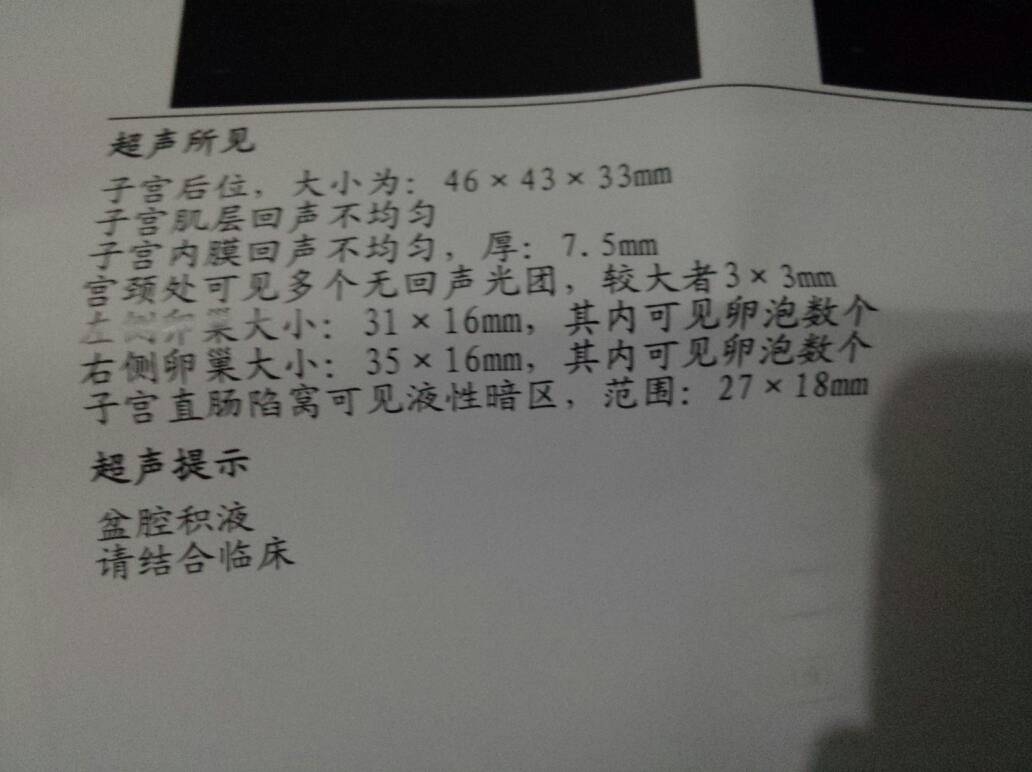 超声所见
子宫后位，大小为：46×43×33mm
子宫肌层回声不均匀
子宫内膜回声不均匀，厚：7.5mm
宫颈处可见多个无回声光团，较大者3×3mm
左侧卵巢大小：31×16mm，其内可见卵泡数个
右侧卵巢大小：35×16mm，其内可见卵泡数个
子宫直肠陷窝可见液性暗区，范围：27×18mm
超声提示
盆腔积液
请结合临床